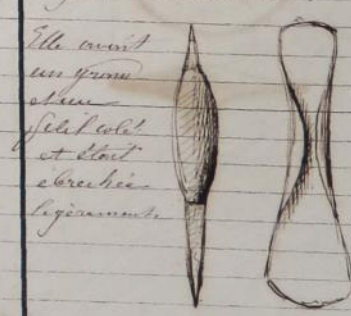 Elle avait
un grand
et un
petit coté
et était
ébrechée
légèrement.